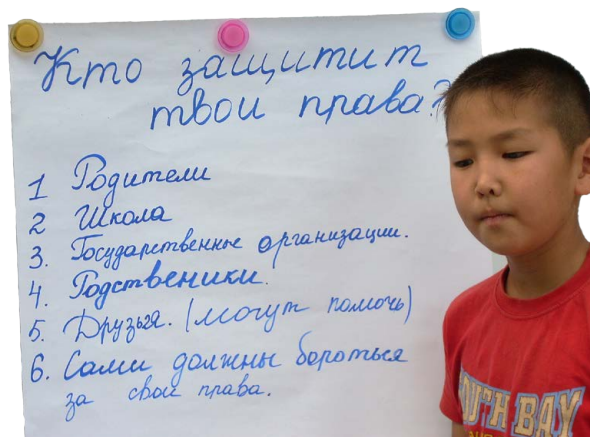 Кто защитит
твои права?
1 Родители
2 Школа
3. Государственные организации.
4. Родственики.
5. Друзья. (могут помочь)
6. Сами должны бороться
за свои права.
SOUTH BAY